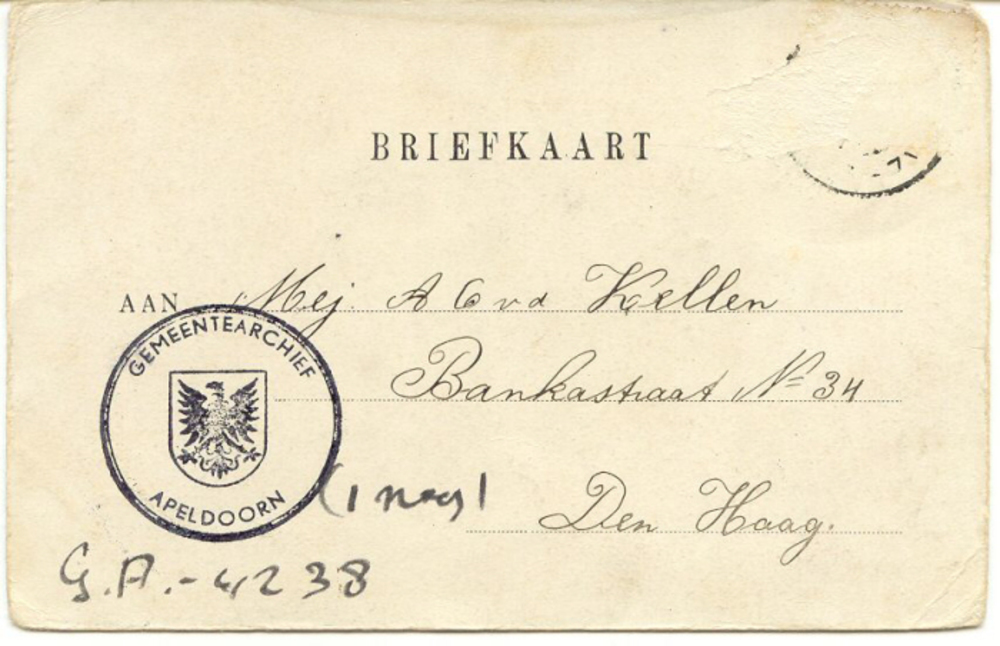 BRIEFKAART
AAN Mej. A C v d Kellen
Bankastraat No 34
Den Haag.
GEMEENTEARCHIEF
APELDOORN
(1 neg)
G.A.-4238